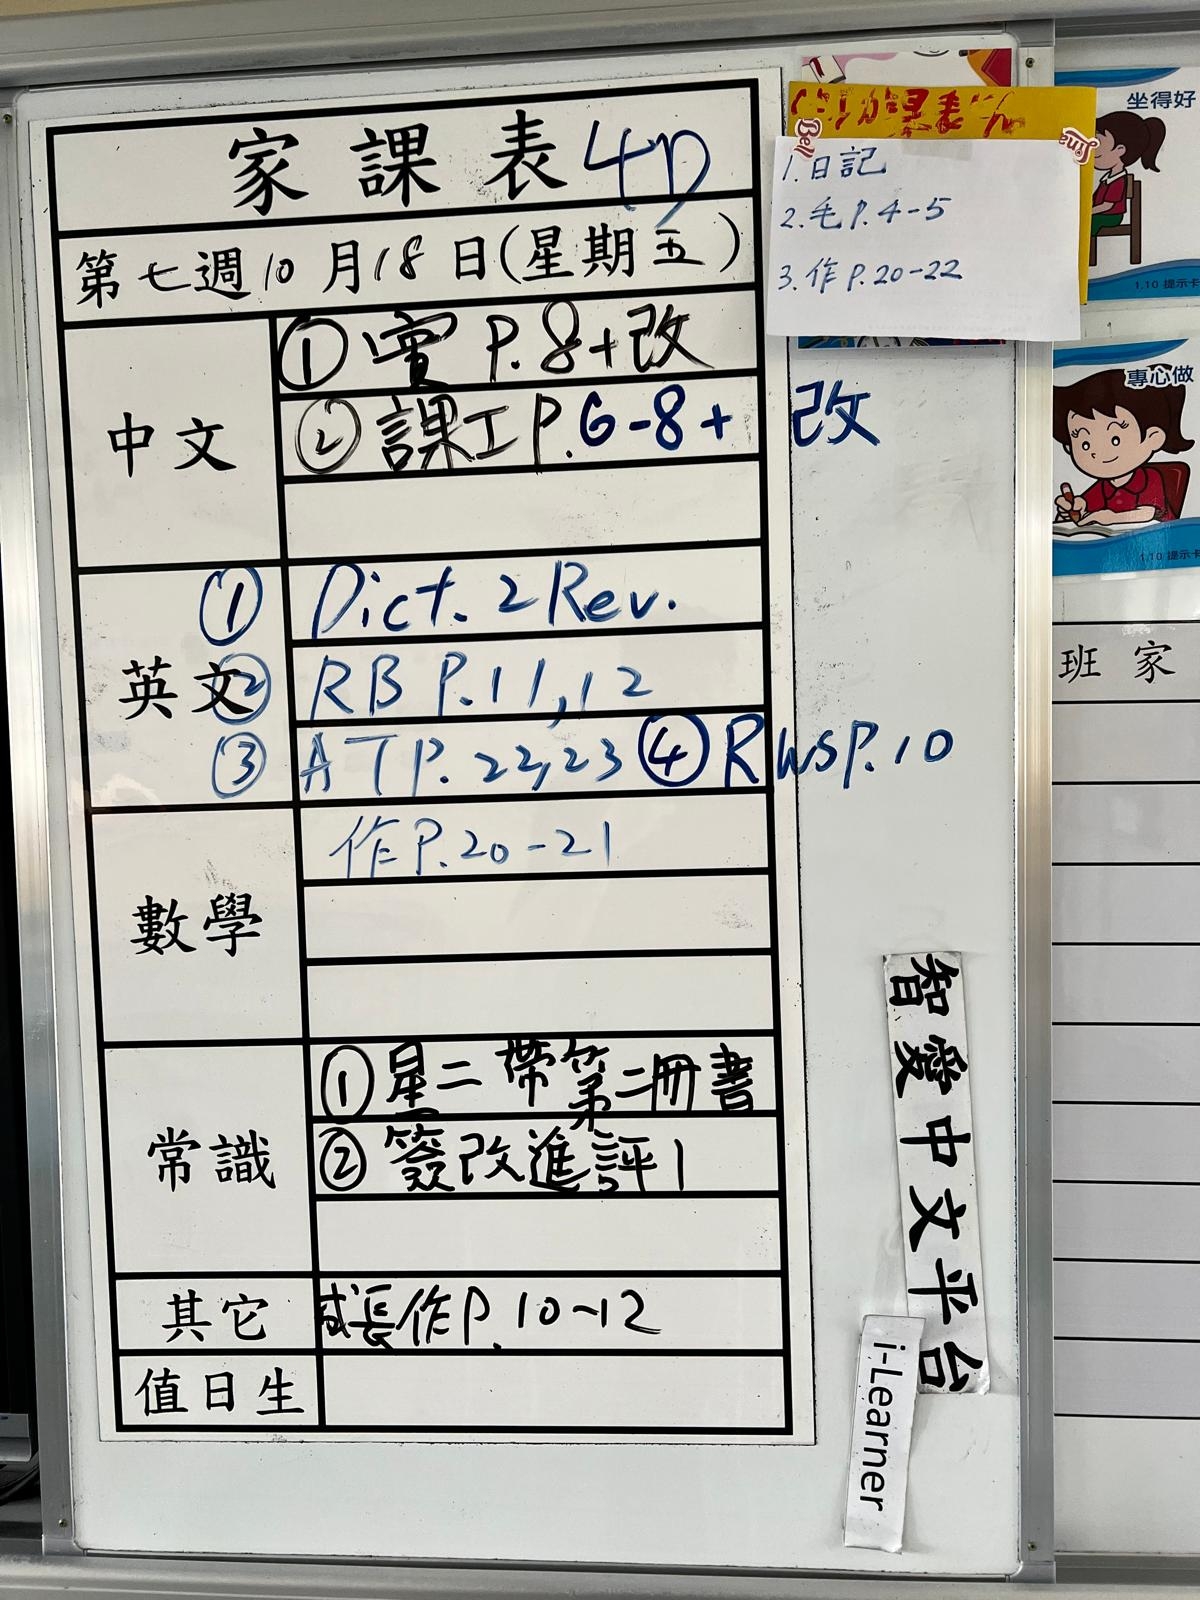 家課表4D
第七週10月18日(星期五)
中文
① 實 P.8+改
② 課工 P.6-8+改
英文
① Dict. 2 Rev.
② RB P.11,12
③ AT P.22,23 ④ RWS P.10
數學
作 P.20-21
常識
① 星二帶第二冊書
② 簽改進評1
其它
成長作 P.10~12
值日生
功課表
Bell
Tina
1. 日記
2. 毛 P.4-5
3. 作 P.20-22
坐得好
1.10 提示卡
專心做
1.10 提示卡
班 家
智愛中文平台
i-Learner